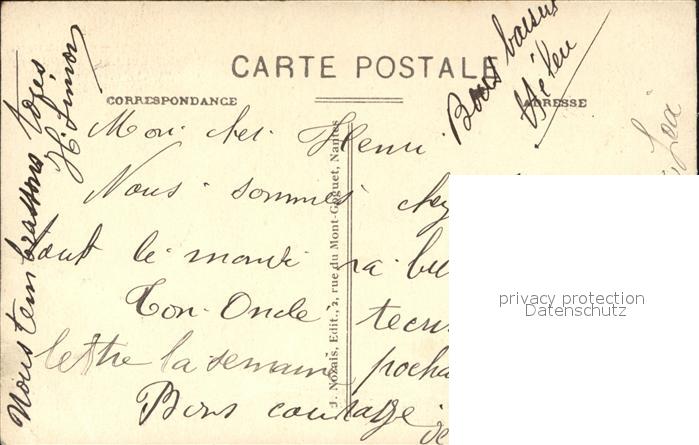 CARTE POSTALE
CORRESPONDANCE
ADRESSE
Mon cher Henri
Nous sommes chez
tout le monde va bien
Ton Oncle tecri
lettre la semaine pocha
Bons courage de
Nous tembrassons tous
H. Simon
Bons baisers
Hélène
J. Nozais, Edit., 2, rue du Mont-Goguet, Nantes
privacy protection
Datenschutz